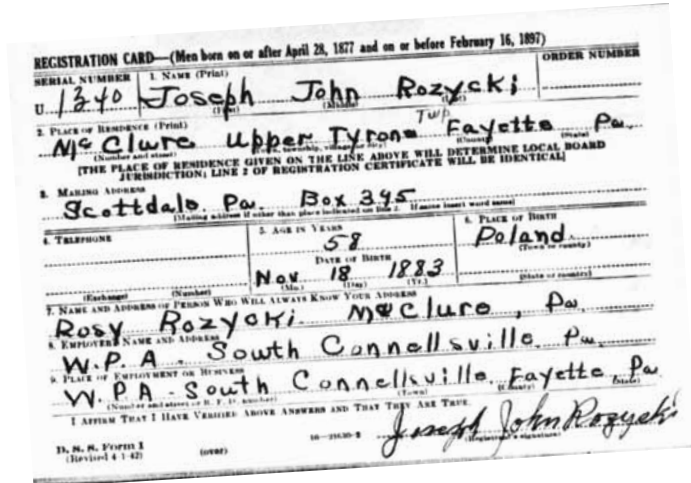 REGISTRATION CARD—(Men born on or after April 28, 1877 and on or before February 16, 1897)
SERIAL NUMBER 1. NAME (Print) ORDER NUMBER
U 1340 Joseph John Rozycki
(First) (Middle) (Last)
2. PLACE OF RESIDENCE (Print)
McClure Upper Tyrone Twp Fayette Pa.
(Number and street) (Town, township, village, or city) (County) (State)
[THE PLACE OF RESIDENCE GIVEN ON THE LINE ABOVE WILL DETERMINE LOCAL BOARD
JURISDICTION; LINE 2 OF REGISTRATION CERTIFICATE WILL BE IDENTICAL]
3. MAILING ADDRESS
Scottdale. Pa. Box 345
[Mailing address if other than place indicated on line 2. If same insert word same]
4. TELEPHONE 5. AGE IN YEARS 6. PLACE OF BIRTH
58 Poland
DATE OF BIRTH (Town or county)
Nov. 18 1883
(Exchange) (Number) (Mo.) (Day) (Yr.) (State or country)
7. NAME AND ADDRESS OF PERSON WHO WILL ALWAYS KNOW YOUR ADDRESS
Rosy Rozycki McClure, Pa.
8. EMPLOYER'S NAME AND ADDRESS
W.P.A. South Connellsville Pa.
9. PLACE OF EMPLOYMENT OR BUSINESS
W.P.A - South Connellsville, Fayette, Pa
(Number and street or R. F. D. number) (Town) (County) (State)
I AFFIRM THAT I HAVE VERIFIED ABOVE ANSWERS AND THAT THEY ARE TRUE.
Joseph John Rozycki
D. S. S. Form 1
(Revised 4-1-42) (over) (Registrant's signature)